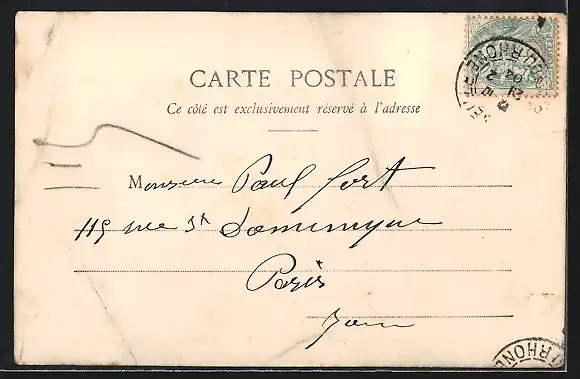 CARTE POSTALE
Ce côté est exclusivement réservé à l'adresse
Monsieur Paul Fort
115 rue St Dominique
Paris
RHONE
RHONE